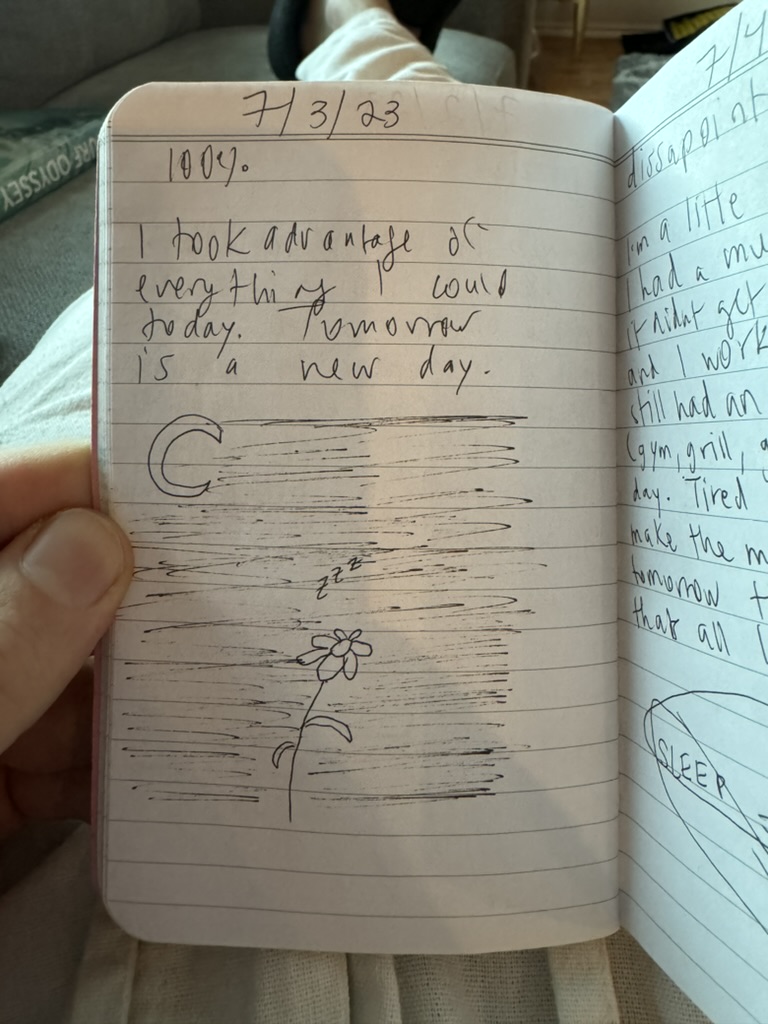 7/3/23
100%.
I took advantage of
everything I could
today. Tomorrow
is a new day.
zzz
7/4
dissapoint
I'm a litte
I had a mu
it didnt get
and I work
still had an
(gym, grill,
day. Tired
make the m
tomorrow t
that all
SLEEP
ODYSSEY